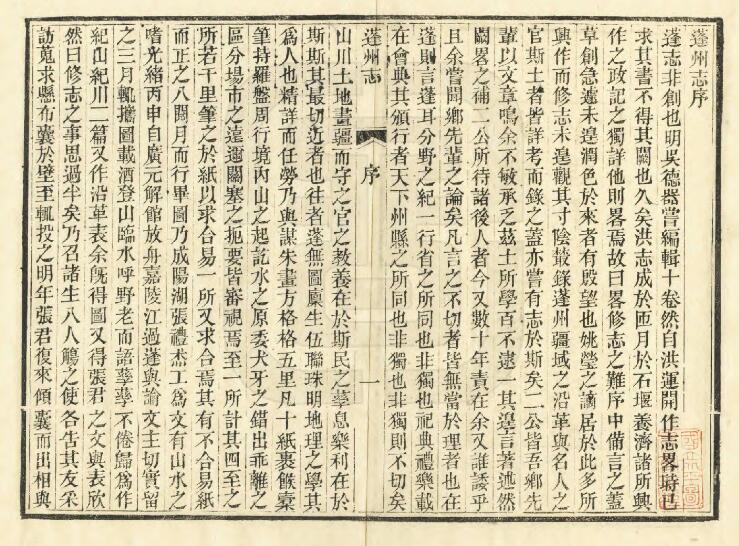 蓬州志序
蓬志非創也明吳德器嘗編輯十卷然自洪運開作志畧時已
求其書不得其闕也久矣洪志成於匝月於石堰養濟諸所興
作之政記之獨詳他則畧焉故曰畧修志之難序中備言之蓋
草創急遽未遑潤色於來者有殷望也姚瑩之謫居於此多所
興作而修志未遑觀其寸陰叢錄蓬州疆域之沿革與名人之
官斯土者皆詳考而錄之蓋亦嘗有志於斯矣二公皆吾鄉先
輩以文章鳴余不敏承乏茲土所學百不逮一其遑言著述然
闕畧之補二公所待諸後人者今又數十年責在余又誰諉乎
且余嘗聞鄉先輩之論矣凡言之不切者皆無當於理者也在
蓬則言蓬耳分野之紀一行省之所同也非獨也祀典禮樂載
在會典其頒行者天下州縣之所同也非獨也非獨則不切矣
蓬州志
序
一
山川土地畫疆而守之官之教養在於斯民之孳息樂利在於
斯斯其最切近者也往者蓬無圖廩生伍聯珠明地理之學其
爲人也精詳而任勞乃與謀朱畫方格格五里凡十紙裹餱橐
筆持羅盤周行境内山之起訖水之原委犬牙之錯出乖離之
區分場市之遠邇關塞之扼要皆審視焉至一所計其四至之
所若干里筆之於紙以求合易一所又求合焉其有不合易紙
而正之八閱月而行畢圖乃成陽湖張禮㮤工爲文有山水之
嗜光緒丙申自廣元解館放舟嘉陵江過蓬與論文主切實留
之三月輒攜圖載酒登山臨水呼野老而語孳孳不倦歸爲作
紀山紀川二篇又作沿革表余旣得圖又得張君之文與表欣
然曰修志之事思過半矣乃召諸生八人觴之使各告其友采
訪蒐求懸布囊於壁至輒投之明年張君復來傾囊而出相與